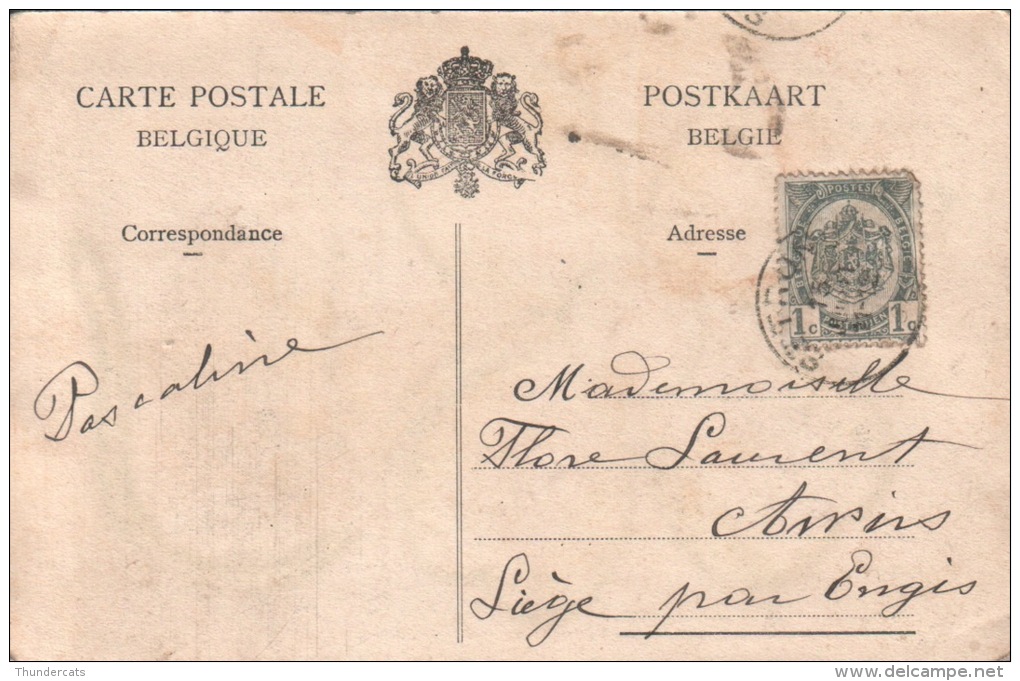 CARTE POSTALE
BELGIQUE
POSTKAART
BELGIE
Correspondance
Adresse
POSTES
1c 1c
Pascaline
Mademoiselle
Flore Laurent
Awirs
Liège par Engis
Thundercats
www.delcampe.net